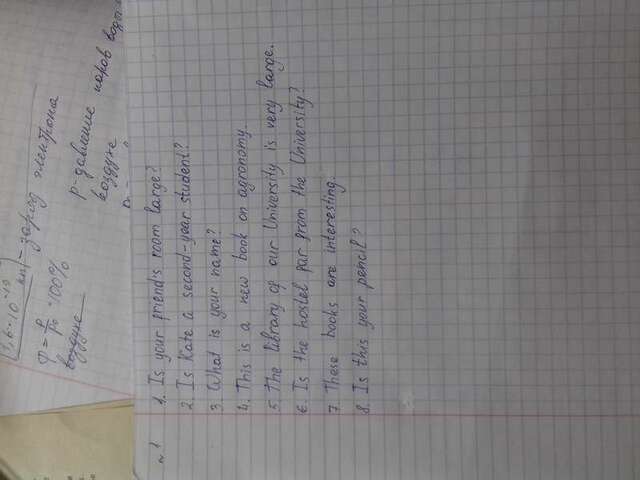 1,6·10⁻¹⁹ кл - заряд электрона
φ = p/p₀ ·100%
воздухе
p-давление паров воды
воздухе
№1
1. Is your friend's room large?
2. Is Kate a second-year student?
3. What is your name?
4. This is a new book on agronomy.
5. The library of our University is very large.
6. Is the hostel far from the University?
7. These books are interesting.
8. Is this your pencil?